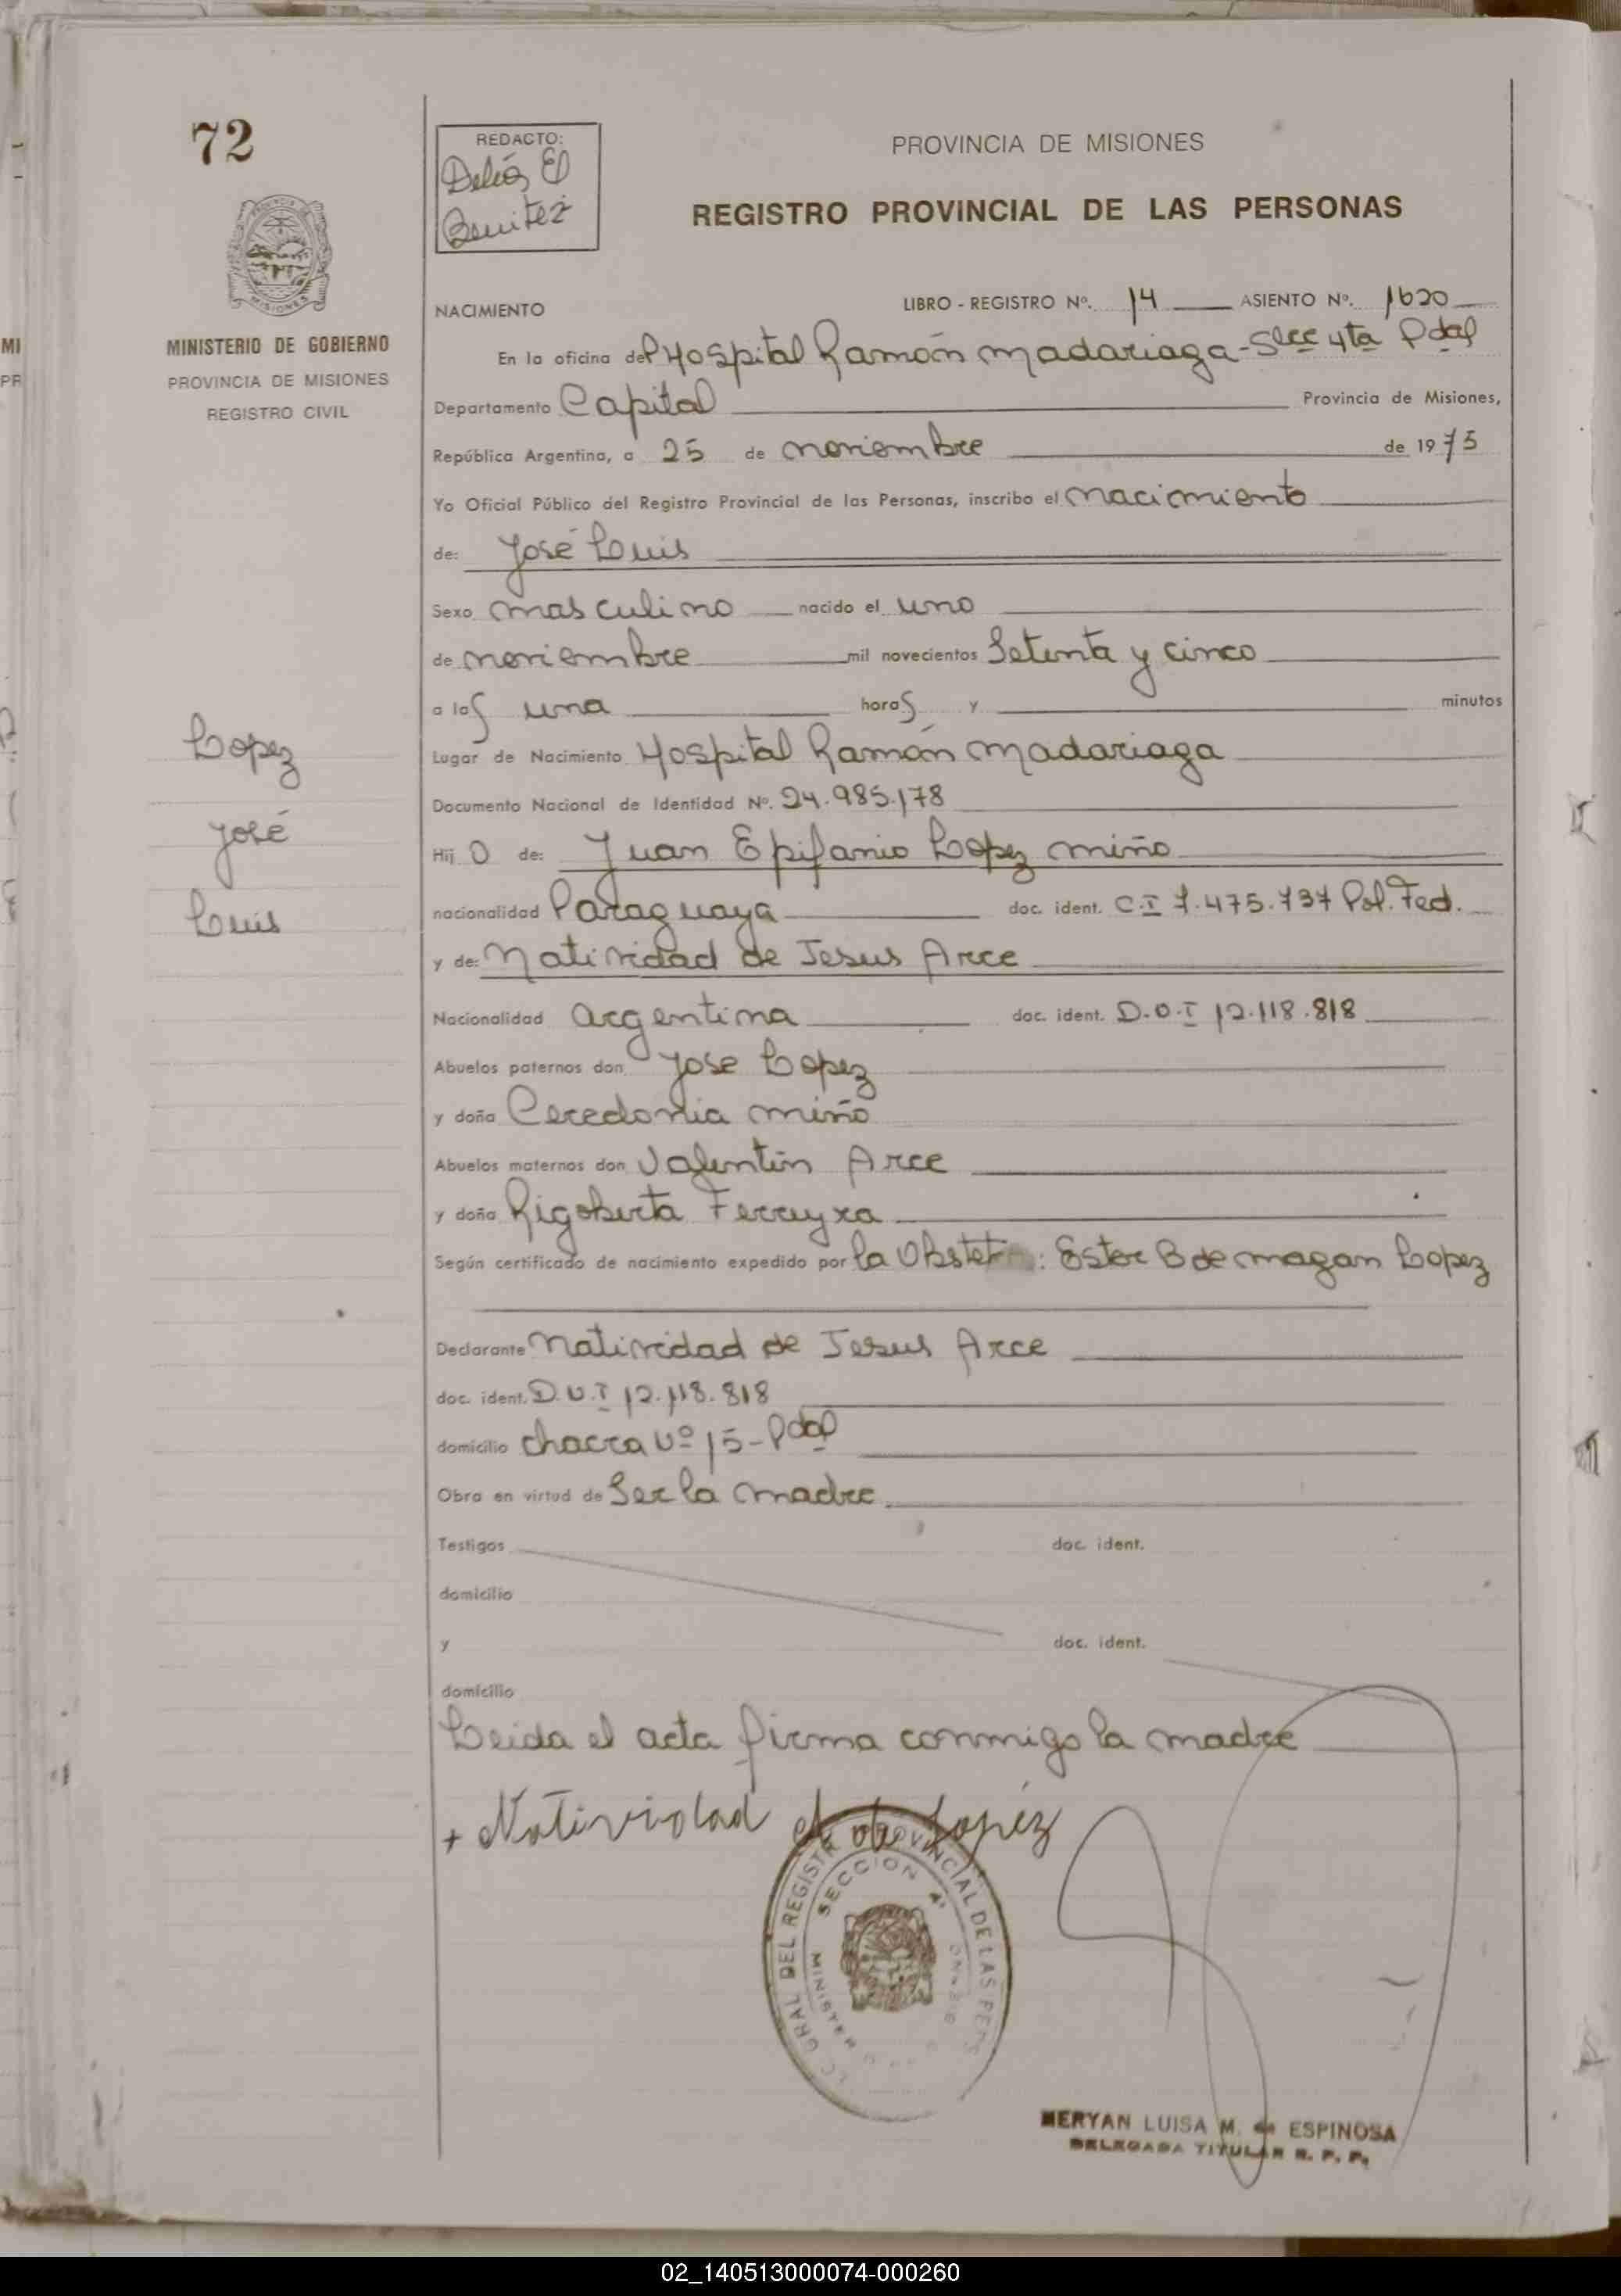 72
REDACTO:
Delia El
Benitez
PROVINCIA DE MISIONES
REGISTRO PROVINCIAL DE LAS PERSONAS
MINISTERIO DE GOBIERNO
PROVINCIA DE MISIONES
REGISTRO CIVIL
NACIMIENTO LIBRO - REGISTRO Nº. 14 ASIENTO Nº. 1620
En la oficina del Hospital Ramón Madariaga - Secc 4ta Pdas
Departamento Capital Provincia de Misiones,
República Argentina, a 25 de noviembre de 1975
Yo Oficial Público del Registro Provincial de las Personas, inscribo el nacimiento
de: José Luis
Sexo masculino nacido el uno
de noviembre mil novecientos Setenta y cinco
a las una horas y minutos
Lugar de Nacimiento Hospital Ramón Madariaga
Documento Nacional de Identidad Nº. 24.985.178
Lopez
José
Luis
Hij O de: Juan Epifanio Lopez miño
nacionalidad Paraguaya doc. ident. C.I 7.475.737 Pol. Fed.
y de: Natividad de Jesus Arce
Nacionalidad argentina doc. ident. D.O.I 12.118.818
Abuelos paternos don Jose Lopez
y doña Ceredonia miño
Abuelos maternos don Valentin Arce
y doña Rigoberta Ferreyra
Según certificado de nacimiento expedido por la Obstet : Ester B de magan Lopez
Declarante Natividad de Jesus Arce
doc. ident. D.U.I 12.118.818
domicilio chacra Nº 15 - Pdas
Obra en virtud de Ser la madre
Testigos doc. ident.
domicilio
y doc. ident.
domicilio
Leida el acta firma conmigo la madre
+ Natividad de Lopéz
GRAL DEL REGISTR PROVINCIAL DE LAS PERS
SECCION 4ª
MINISTER
MERYAN LUISA M. de ESPINOSA
DELEGADA TITULAR R. P. P.
02_140513000074-000260